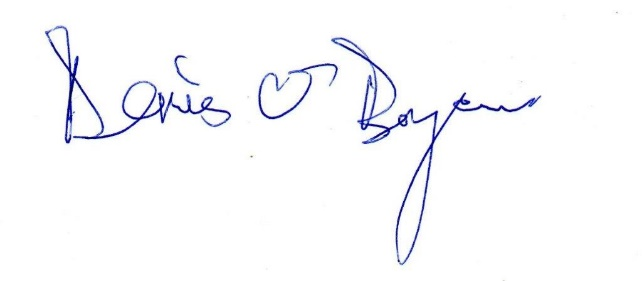 Denis O'Bryan